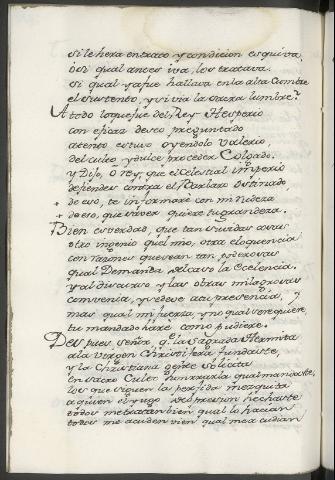 si le hera en trato y condicion esquiva,
ò si qual ances iva, los tratava.
si qual ya fue hallava en la alta Cumbre
el sustento, y si via la sacra lumbre?
A todo lo que fue del Rey Hesperio
con eficaz deseo preguntado
atento estuvo oyendolo Valerio,
del culto y dulce proceder Colgado.
Y Dijo, ô rey, que el Celestial imperio
defiendes contra el Barbaro ostinado,
+ de eso, te informaré con mi rudeza
+ de eso, que saver quiere tu grandeza.
Bien es verdad, que tan subidas cosas
otro ingenio que l mio, otra eloquencia
con razones que sean tan poderosas
qual Demanda el caso la Ecelencia.
Y al discurso y las otras milagrosas
convenia, y se deve a tu presencia,
mas qual mi fuerza, y no qual se requiere
tu mandado hare como pudiere.
Despues señor q. la sagrada Hermita
a la Virgen Christifera fundaste,
y la Christiana gente solicita
en sacro Culto honrrarla qual mandaste,
los que siguen la perfida mezquita
a quien el yugo de opresion hechaste
todos me tratan bien qual lo hacian
todos me acuden bien qual me acudian